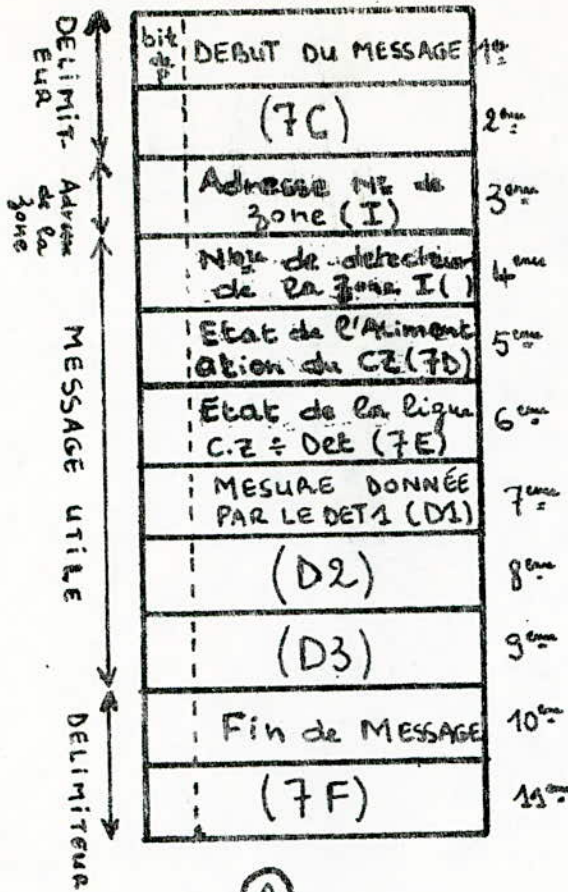 DELIMIT-
EUR
Adresse
de la
zone
MESSAGE UTILE
DELIMITEUR
bit
de
P
DEBUT DU MESSAGE
1er
(7C)
2ème
Adresse Nº de
zone (I)
3ème
Nbre de detecteur
de la zone I( )
4ème
Etat de l'Aliment
ation du CZ (7D)
5ème
Etat de la ligne
C.Z ÷ Det (7E)
6ème
MESURE DONNÉE
PAR LE DET1 (D1)
7ème
(D2)
8ème
(D3)
9ème
Fin de MESSAGE
10ème
(7F)
11ème